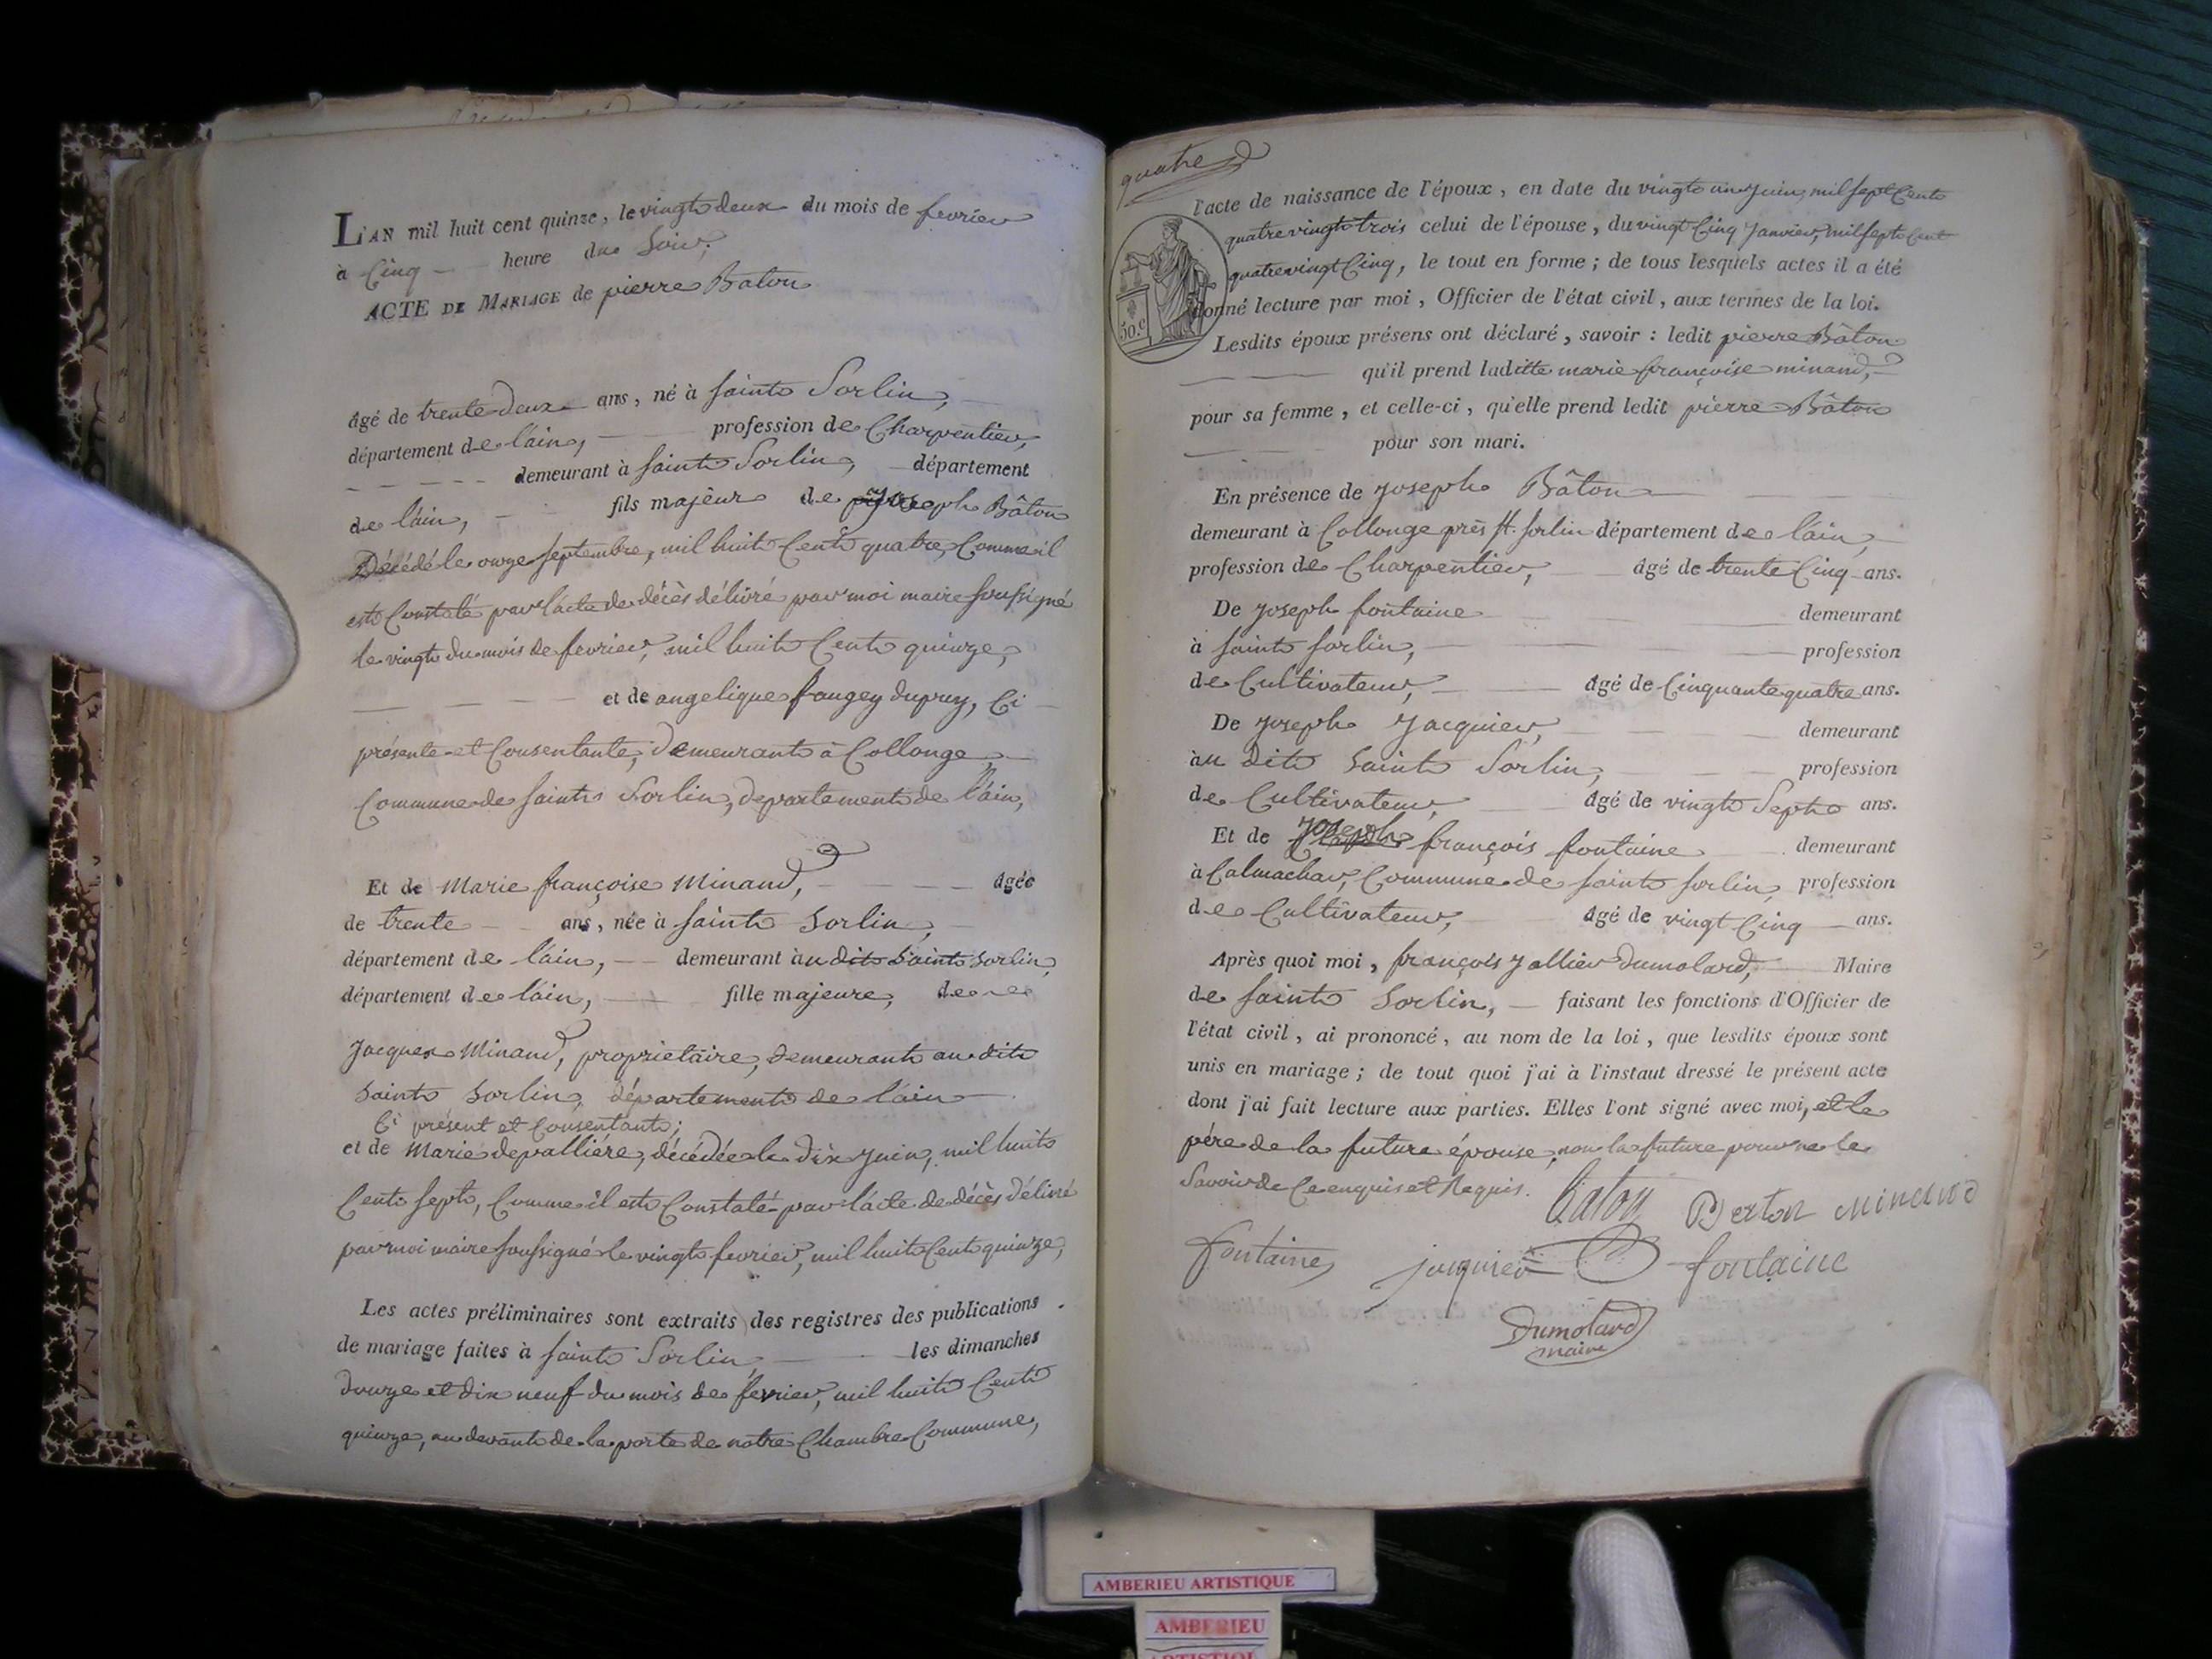 L'AN mil huit cent quinze, le vingt deux du mois de fevrier
à Cinq heure du Soir,
ACTE DE MARIAGE de pierre Baton
âgé de trente deux ans, né à saint Sorlin,
département de l'ain, profession de Charpentier,
demeurant à saint Sorlin, département
de l'ain, fils majeur de joseph Bâton
Décédé le onze septembre, mil huit Cent quatre, Comme il
est Constaté par l'acte de décès délivré par moi maire soussigné
le vingt du mois de fevrier, mil huit Cent quinze,
et de angelique faugey dupuy, Ci
présente et Consentante, demeurant à Collonge,
Commune de saint Sorlin, departement de l'ain,
Et de Marie françoise Minand, âgée
de trente ans, née à saint Sorlin,
département de l'ain, demeurant au dit Saint Sorlin,
département de l'ain, fille majeure, de
Jacques Minand, proprietaire, demeurant au dit
Saint Sorlin, département de l'ain
Ci présent et Consentant;
et de Marie depalliére, décédée le dix juin, mil huit
Cent sept, Comme il est Constaté par l'acte de décès délivré
par moi maire soussigné le vingt fevrier, mil huit Cent quinze,
Les actes préliminaires sont extraits des registres des publications
de mariage faites à saint Sorlin, les dimanches
douze et dix neuf du mois de fevrier, mil huit Cent
quinze, au devant de la porte de notre Chambre Commune,
quatre
l'acte de naissance de l'époux, en date du vingt un juin, mil sept Cent
quatre vingt trois celui de l'épouse, du vingt Cinq Janvier, mil sept Cent
quatre vingt Cinq, le tout en forme ; de tous lesquels actes il a été
donné lecture par moi, Officier de l'état civil, aux termes de la loi.
50.c
Lesdits époux présens ont déclaré, savoir : ledit pierre Bâton
qu'il prend laditte marie françoise minand,
pour sa femme, et celle-ci, qu'elle prend ledit pierre Bâton
pour son mari.
En présence de joseph Bâton
demeurant à Collonge près st. sorlin département de l'ain,
profession de Charpentier, âgé de trente Cinq ans.
De joseph fontaine demeurant
à saint sorlin, profession
de Cultivateur, âgé de Cinquante quatre ans.
De joseph Jacquier, demeurant
au dit Saint Sorlin, profession
de Cultivateur, âgé de vingt Sept ans.
Et de françois fontaine demeurant
à Calmachar, Commune de saint sorlin, profession
de Cultivateur, âgé de vingt Cinq ans.
Après quoi moi, françois Jallier dumolard, Maire
de saint Sorlin, faisant les fonctions d'Officier de
l'état civil, ai prononcé, au nom de la loi, que lesdits époux sont
unis en mariage ; de tout quoi j'ai à l'instaut dressé le présent acte
dont j'ai fait lecture aux parties. Elles l'ont signé avec moi, et le
pére de la future épouse, non la future pour ne le
Savoir de Ce enquis et Requis.
Baton Berton Minand
fontaine jaquier fontaine
Dumolard
maire
AMBERIEU ARTISTIQUE
AMBERIEU
ARTISTIQUE